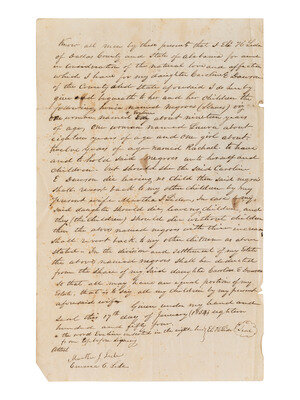 Know all men by these presents that I Eli H Lide
of Dallas County and State of Alabama for and
in Consideration of the natural love and affection
which I have for my daughter Caroline E Dawson
of the County and State aforesaid I do hereby
give and bequeath to her and her Children the
following herein named negroes (Slaves) viz
one woman named about nineteen years
of age, One woman named Louisa about
eighteen years of age and one girl about
twelve years of age named Rachael to have
and to hold said negroes unto herself and
Children. But should she the said Caroline
E Dawson die having no Child then said negroes
shall revert back to my other children by my
present wife Martha J Lide. In case my
said daughter should die leaving children and
they (the children) should die without children
then the above named negroes with their increase
shall revert back to my other children as above
stated. In the division and settlement of my Estate
the above named negroes shall be deducted
from the share of my said daughter Caroline E Dawson
so that all may have an equal portion of my
Estate, that is to say all my children by my present
aforesaid wife. Given under my hand and
Seal this 17th day of January (1854) eighteen
hundred and fifty four
the word inserted in the eighth line
from top before signing
Attest
Martha J Lide
Cornelia C. Lide